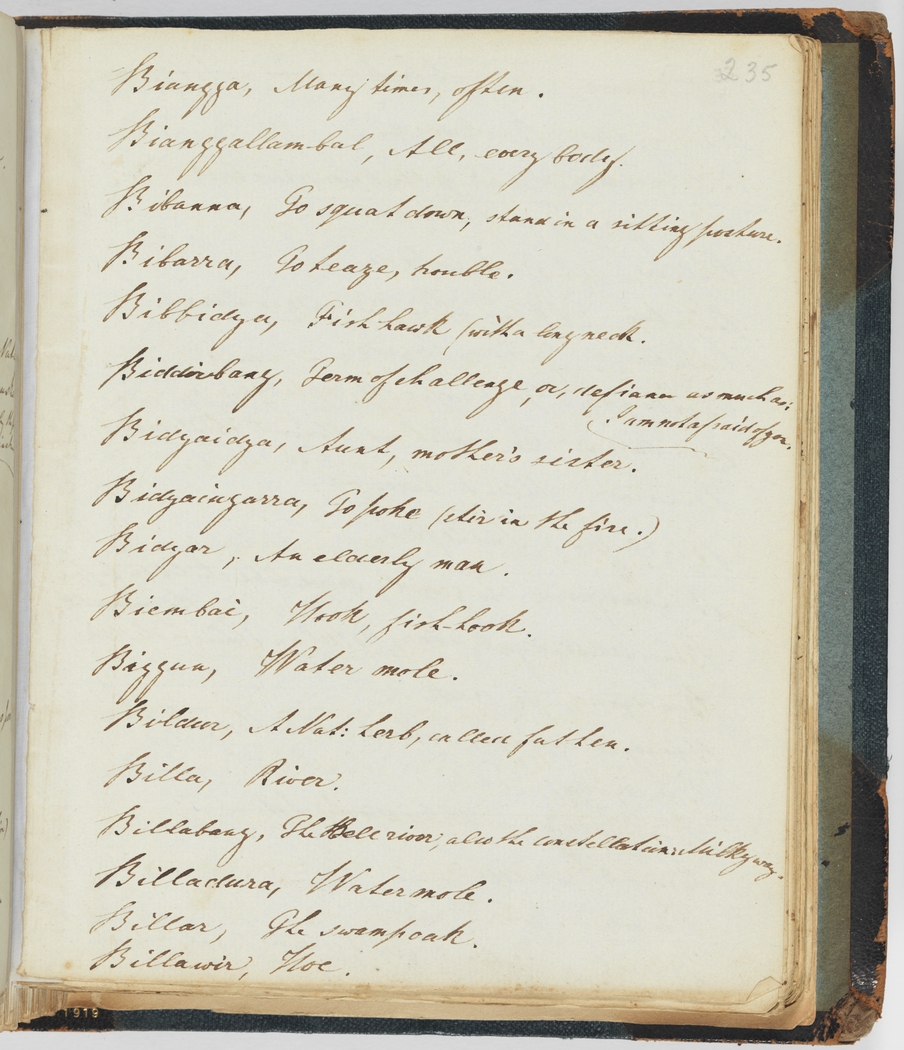 235
Biangga, Many times, often.
Bianggallambul, All, every body.
Bibanna, To squat down, stand in a sitting posture.
Bibarra, To teaze, trouble.
Bibbidya, Fish hawk (with a long neck.
Biddirbang, Term of challenge, or, defiance as much as:
I am not afraid of you.
Bidyaidya, Aunt, mother's sister.
Bidyaingarra, To poke (stir in the fire.)
Bidyur, An elderly man.
Biembai, Hook, fish-hook.
Biggun, Water mole.
Bildur, A Nat: herb, called fat hen.
Billa, River.
Billabang, The Bell river; also the constellation: Milky way.
Billadura, Watermole.
Billar, The swampoak.
Billawir, Hoe.
1919